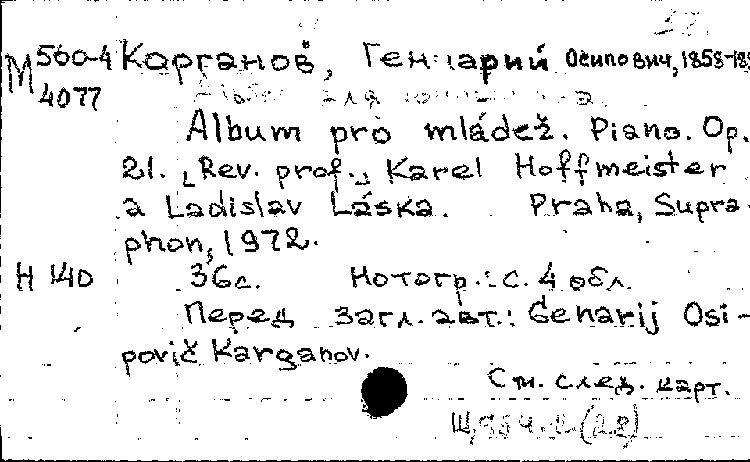 М 560-4 Карганов, Геннарий Осипович, 1858-18
4077
Album pro mládež. Piano. Op.
21. [Rev. prof.] Karel Hoffmeister
a Ladislav Láska. Praha, Supra-
phon, 1972.
Н 140 36 с. Нотогр.: с. 4 обл.
Перед загл. авт.: Genarij Osi-
povič Karganov.
См. след. карт.